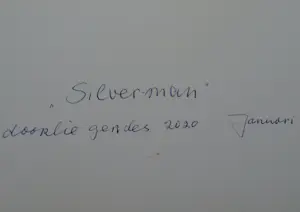 „Silverman"
doorlie gendes 2020 Januari